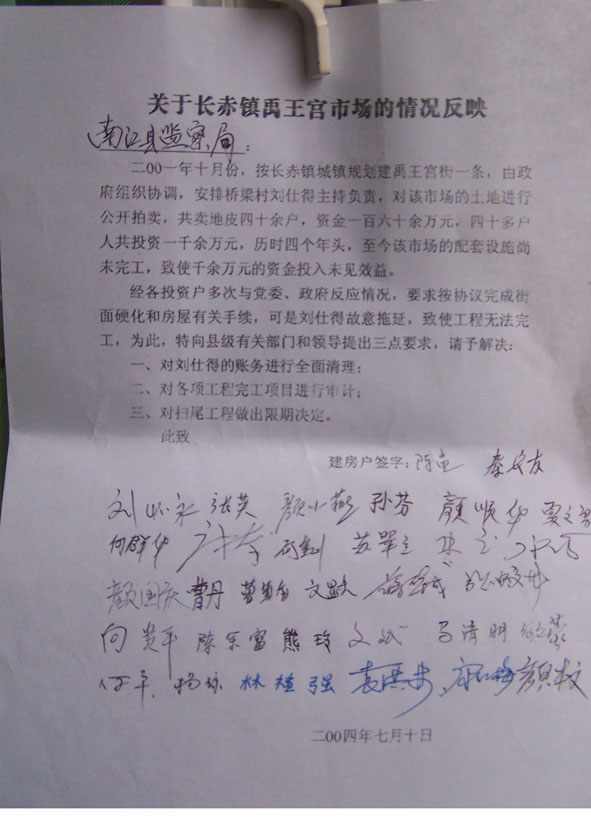 关于长赤镇禹王宫市场的情况反映
南江县监察局：
二00一年十月份，按长赤镇城镇规划建禹王宫街一条，由政
府组织协调，安排桥梁村刘仕得主持负责，对该市场的土地进行
公开拍卖，共卖地皮四十余户，资金一百六十余万元，四十多户
人共投资一千余万元，历时四个年头，至今该市场的配套设施尚
未完工，致使千余万元的资金投入未见效益。
经各投资户多次与党委、政府反应情况，要求按协议完成街
面硬化和房屋有关手续，可是刘仕得故意拖延，致使工程无法完
工，为此，特向县级有关部门和领导提出三点要求，请予解决：
一、对刘仕得的账务进行全面清理；
二、对各项工程完工项目进行审计；
三、对扫尾工程做出限期决定。
此致
建房户签字：
张英 颜小燕 孙芬 颜顺华
向群华
颜国庆 曹丹
向贵平 陈乐富 熊玲 文斌 马清明
何平 杨琼 林植强 颜校
二00四年七月十日